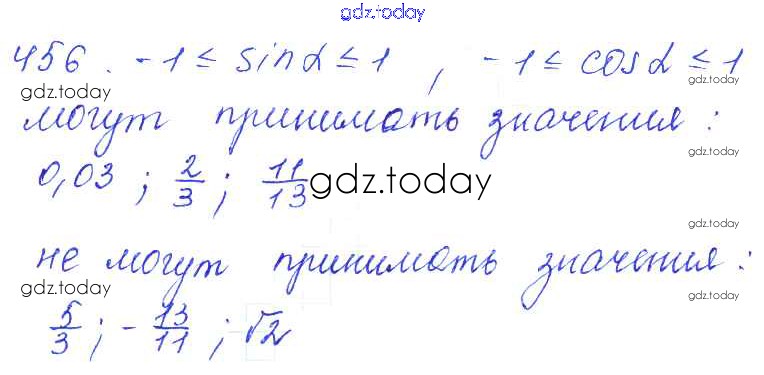 gdz.today
456. -1 ≤ sinα ≤ 1 , -1 ≤ cosα ≤ 1
gdz.today gdz.today
могут принимать значения:
0,03 ; 2/3 ; 11/13 gdz.today
gdz.today
не могут принимать значения:
gdz.today gdz.today
5/3 ; - 13/11 ; √2